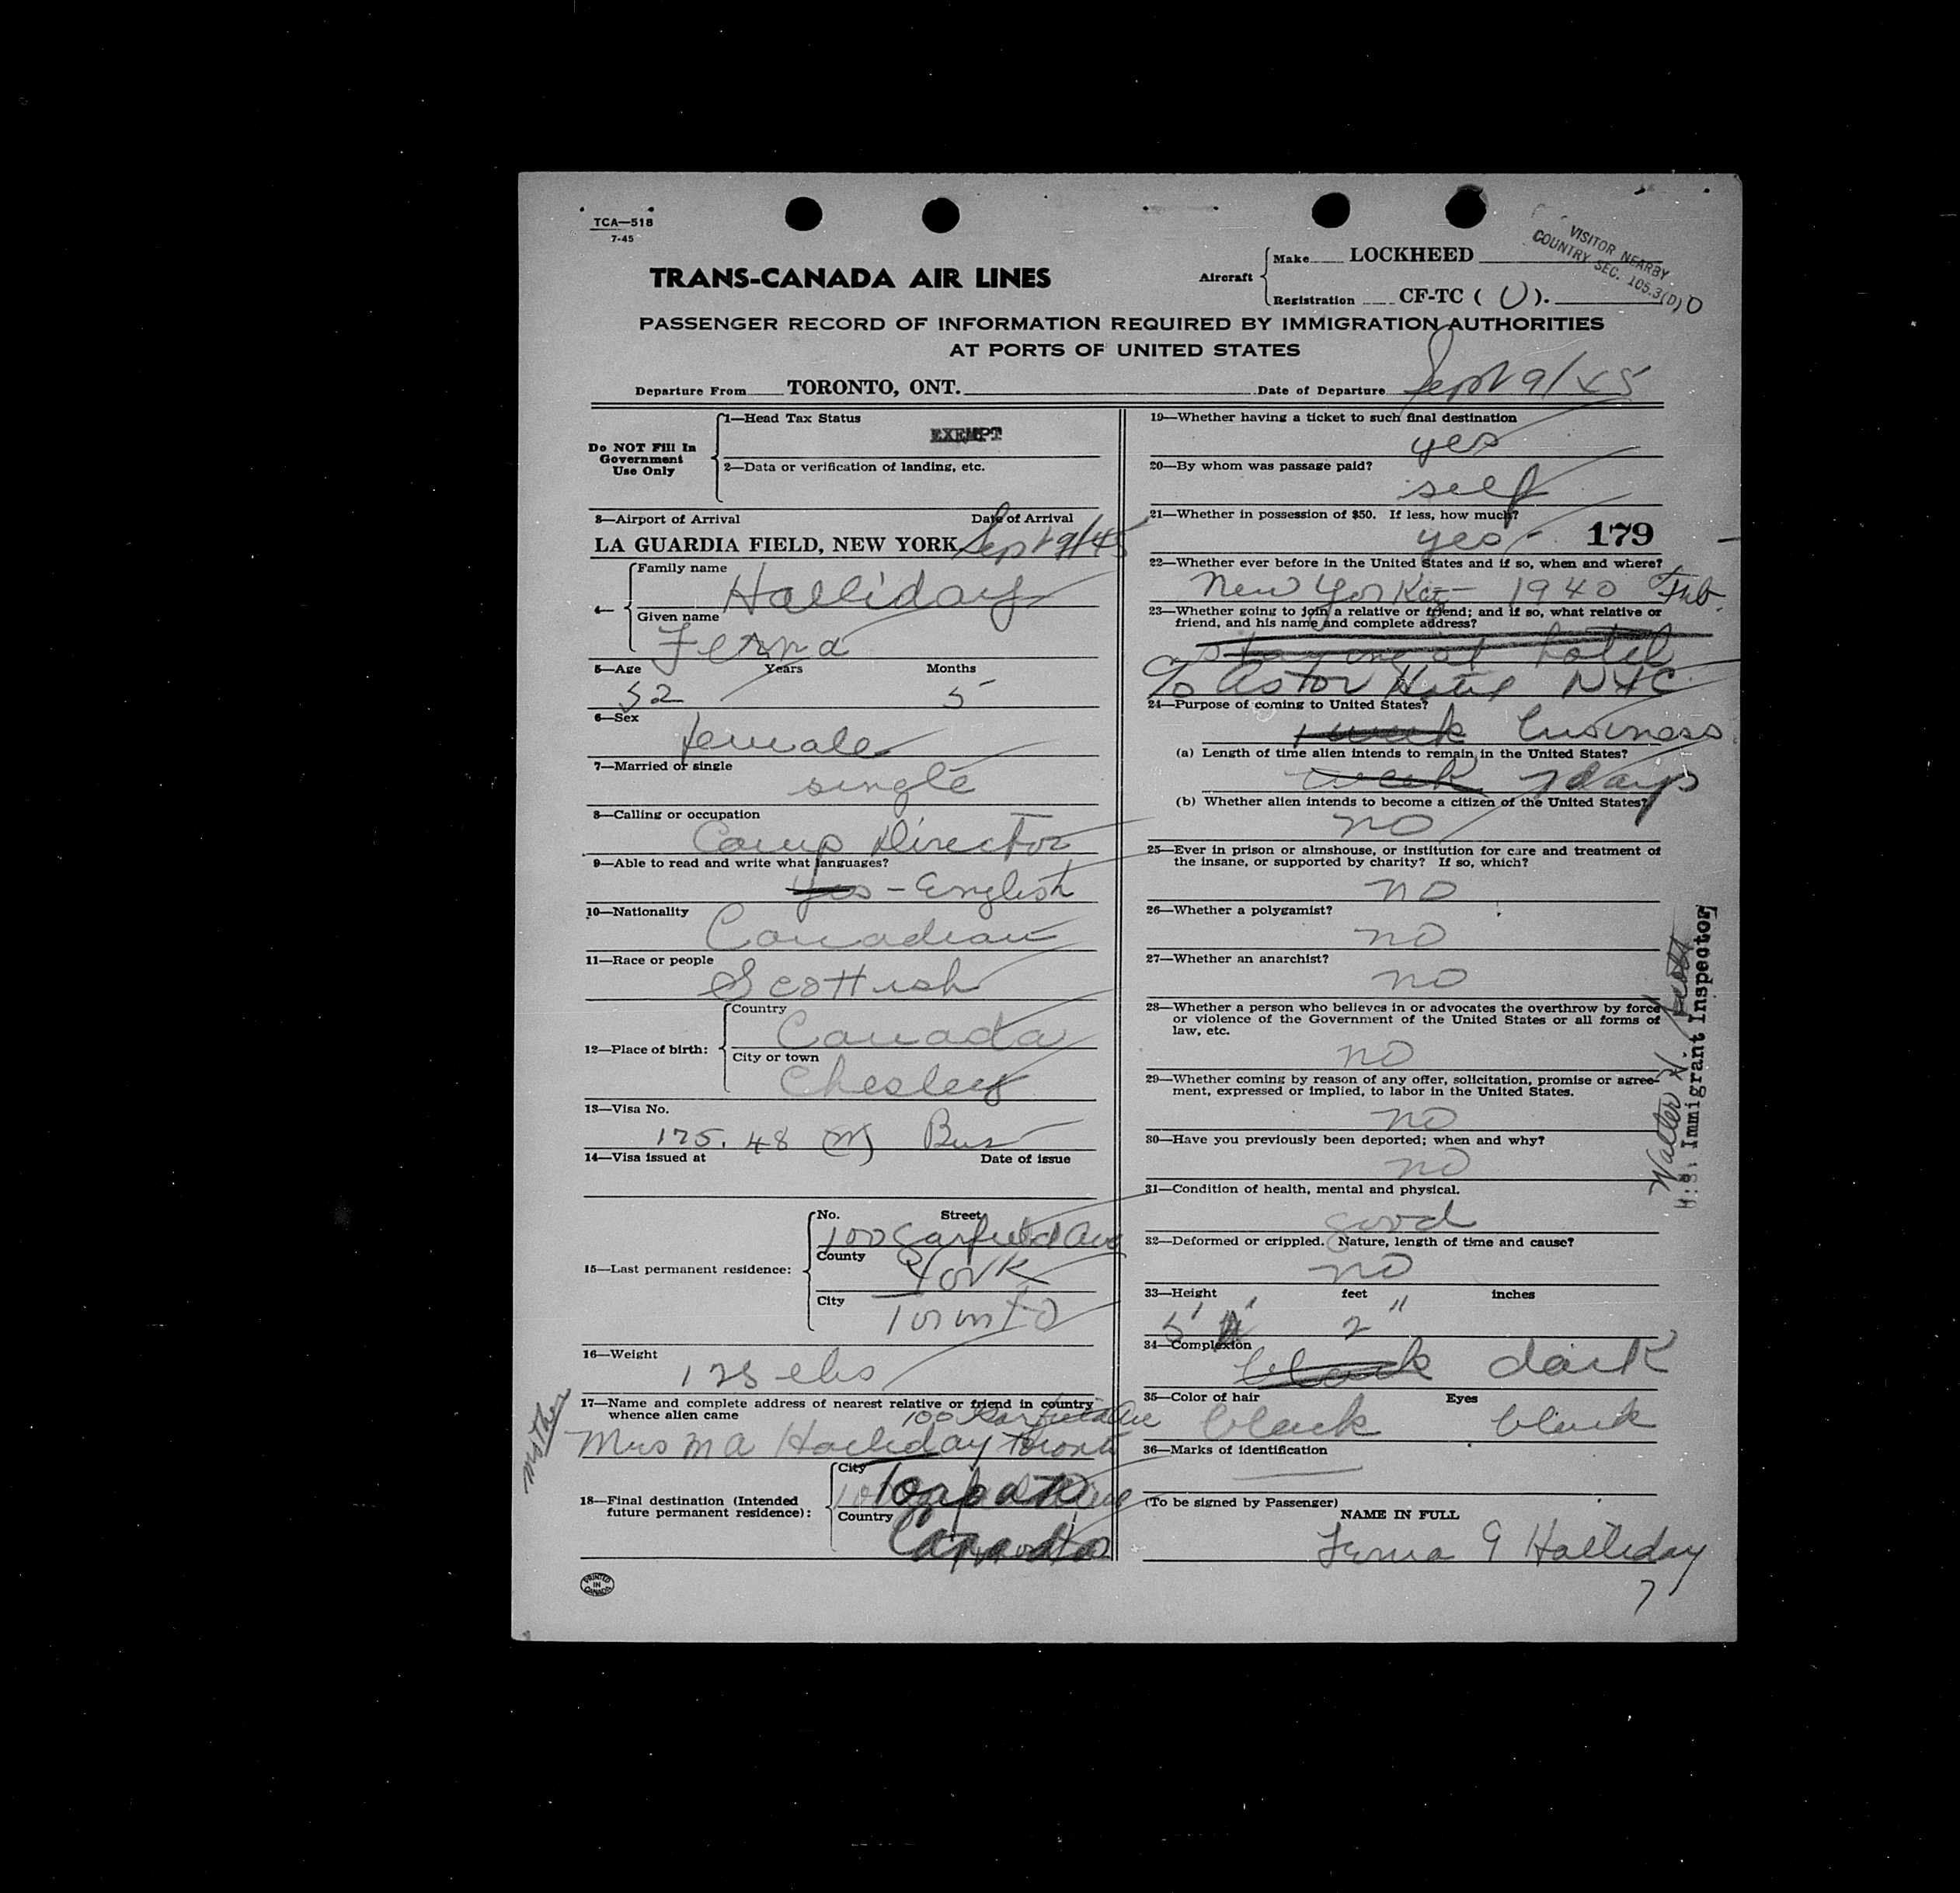 TCA—518
7-45
TRANS-CANADA AIR LINES
Aircraft
Make LOCKHEED
Registration CF-TC ( U ).
VISITOR NEARBY
COUNTRY SEC. 105.3(D)
PASSENGER RECORD OF INFORMATION REQUIRED BY IMMIGRATION AUTHORITIES
AT PORTS OF UNITED STATES
Departure From TORONTO, ONT. Date of Departure Sept 9/45
Do NOT Fill In
Government
Use Only
1—Head Tax Status
EXEMPT
2—Data or verification of landing, etc.
3—Airport of Arrival Date of Arrival
LA GUARDIA FIELD, NEW YORK Sept 9/45
4—
Family name Halliday
Given name
Ferna
5—Age Years Months
52 5
6—Sex
female
7—Married or single
single
8—Calling or occupation
Camp Director
9—Able to read and write what languages?
yes - English
10—Nationality
Canadian
11—Race or people
Scottish
12—Place of birth:
Country
Canada
City or town
Chesley
13—Visa No.
175.48 (M) Bus
14—Visa issued at Date of issue
15—Last permanent residence:
No. Street
100 Garfield Ave
County York
City Toronto
16—Weight
125 lbs
17—Name and complete address of nearest relative or friend in country
whence alien came 100 Garfield Ave
Mrs M A Halliday Toronto
mother
18—Final destination (Intended
future permanent residence):
City Toronto
Country Canada
PRINTED
IN
CANADA
19—Whether having a ticket to such final destination
yes
20—By whom was passage paid?
self
21—Whether in possession of $50. If less, how much?
yes - 179
22—Whether ever before in the United States and if so, when and where?
New York City - 1940 Feb.
23—Whether going to join a relative or friend; and if so, what relative or
friend, and his name and complete address?
staying at hotel
c/o Astor Hotel NYC
24—Purpose of coming to United States?
1 week business
(a) Length of time alien intends to remain in the United States?
week 7 days
(b) Whether alien intends to become a citizen of the United States?
no
25—Ever in prison or almshouse, or institution for care and treatment of
the insane, or supported by charity? If so, which?
no
26—Whether a polygamist?
no
27—Whether an anarchist?
no
28—Whether a person who believes in or advocates the overthrow by force
or violence of the Government of the United States or all forms of
law, etc.
no
29—Whether coming by reason of any offer, solicitation, promise or agree-
ment, expressed or implied, to labor in the United States.
no
30—Have you previously been deported; when and why?
no
31—Condition of health, mental and physical.
good
32—Deformed or crippled. Nature, length of time and cause?
no
33—Height feet inches
5' 2"
34—Complexion
black dark
35—Color of hair Eyes
black black
36—Marks of identification
(To be signed by Passenger)
NAME IN FULL
Ferna G Halliday
7
Walter N.
U.S. Immigrant Inspector